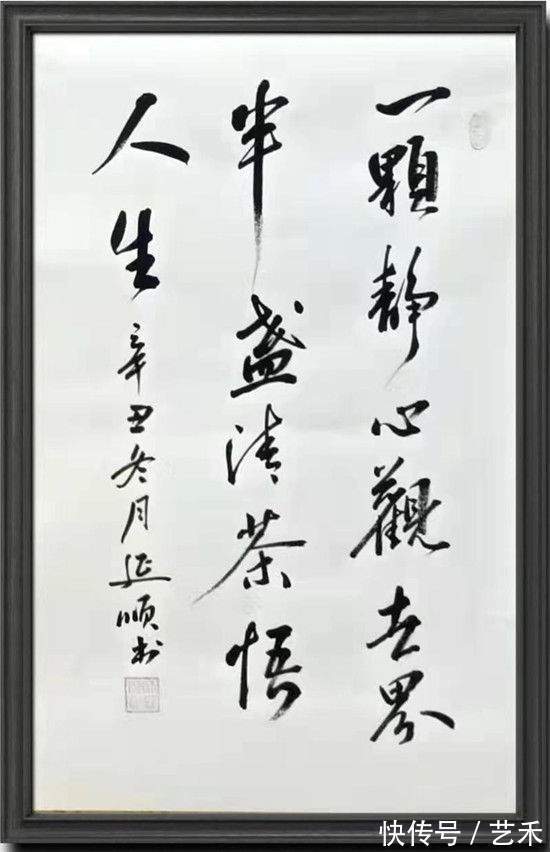 一顆静心觀世界
半盞清茶悟
人生
辛丑冬月延順书
快传号/艺禾